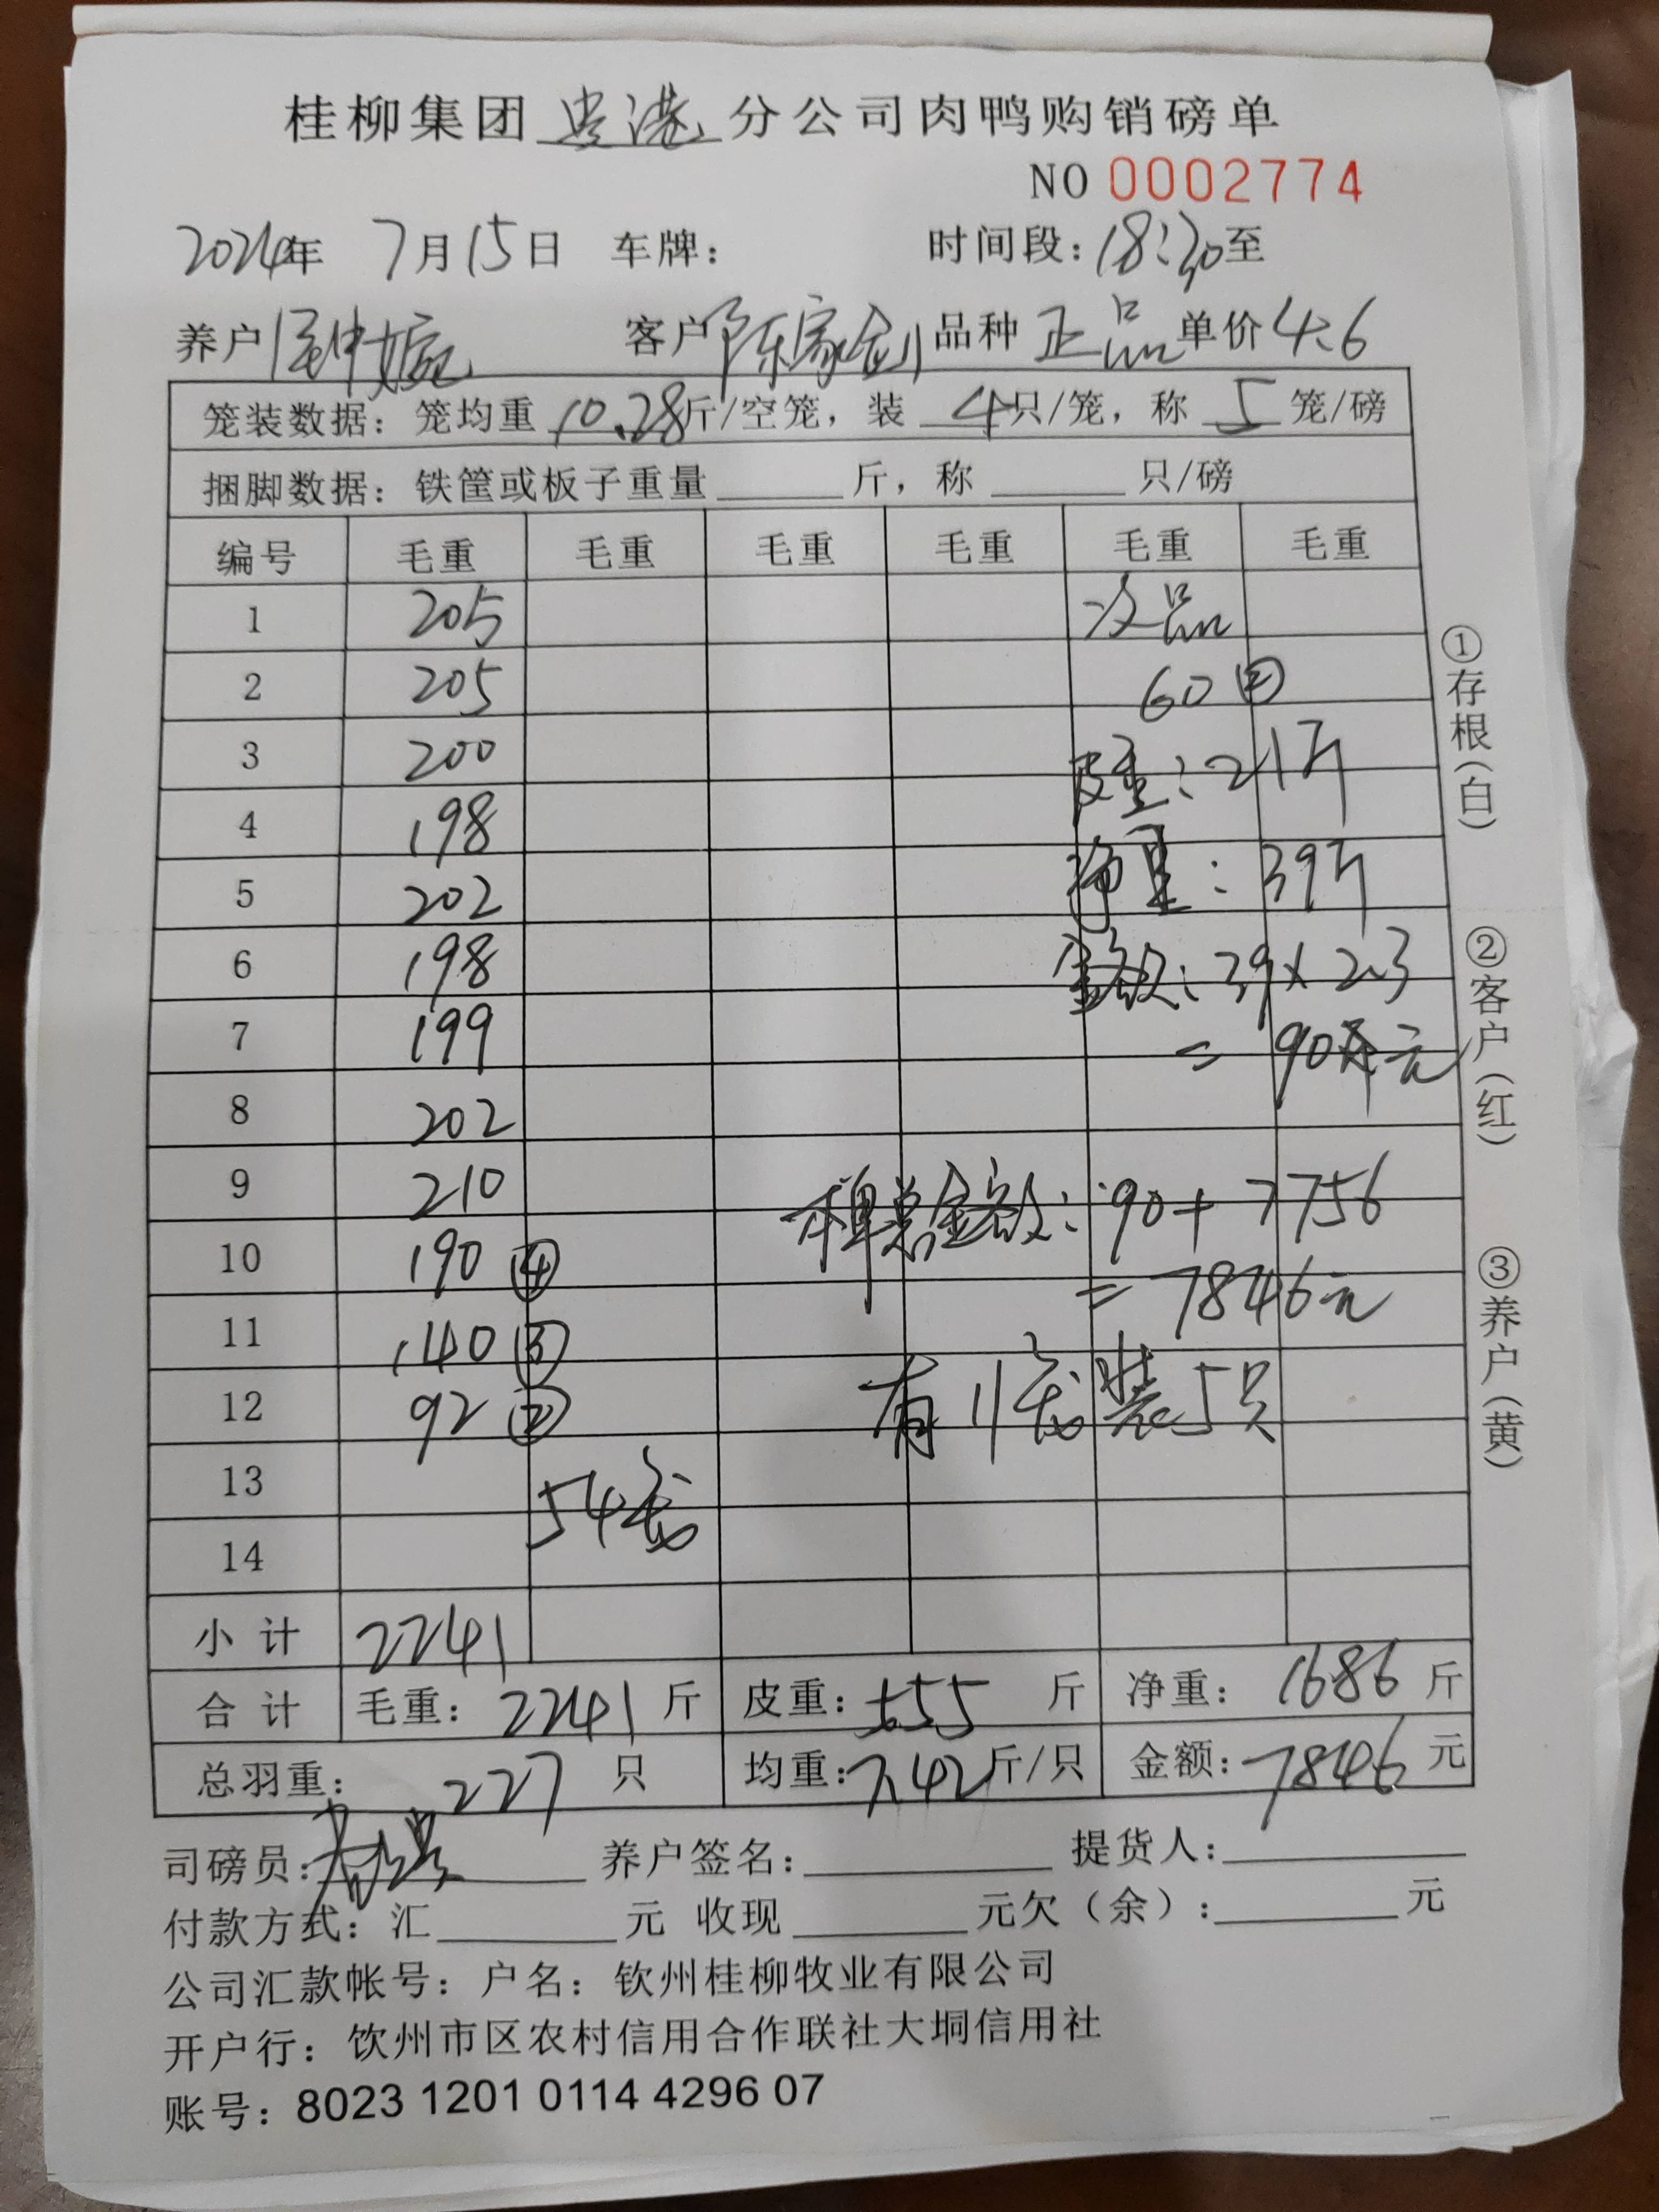 桂柳集团贵港分公司肉鸭购销磅单
NO 0002774
2024年 7月15日 车牌： 时间段：18:30至
养户 客户陈家剑 品种 正品 单价4.6
笼装数据：笼均重 10.28斤/空笼，装 4只/笼，称 5 笼/磅
捆脚数据：铁筐或板子重量 斤，称 只/磅
编号 毛重 毛重 毛重 毛重 毛重 毛重
1 205 次品
2 205 60 ②
3 200 皮重：21斤
4 198
5 202 净重：39斤
6 198 金额：39×2.3
7 199 = 90元
8 202
9 210 本单总金额：90+7756
10 190 ④ = 7846元
11 140 ③
12 92 ② 有1笼装5只
13 54笼
14
小计 2241
合计 毛重：2241斤 皮重：555 斤 净重：1686斤
总羽重：227 只 均重：7.42斤/只 金额：7846元
司磅员： 养户签名： 提货人：
付款方式：汇 元 收现 元欠（余）： 元
公司汇款帐号：户名：钦州桂柳牧业有限公司
开户行：钦州市区农村信用合作联社大垌信用社
账号：8023 1201 0114 4296 07
①存根（白）
②客户（红）
③养户（黄）